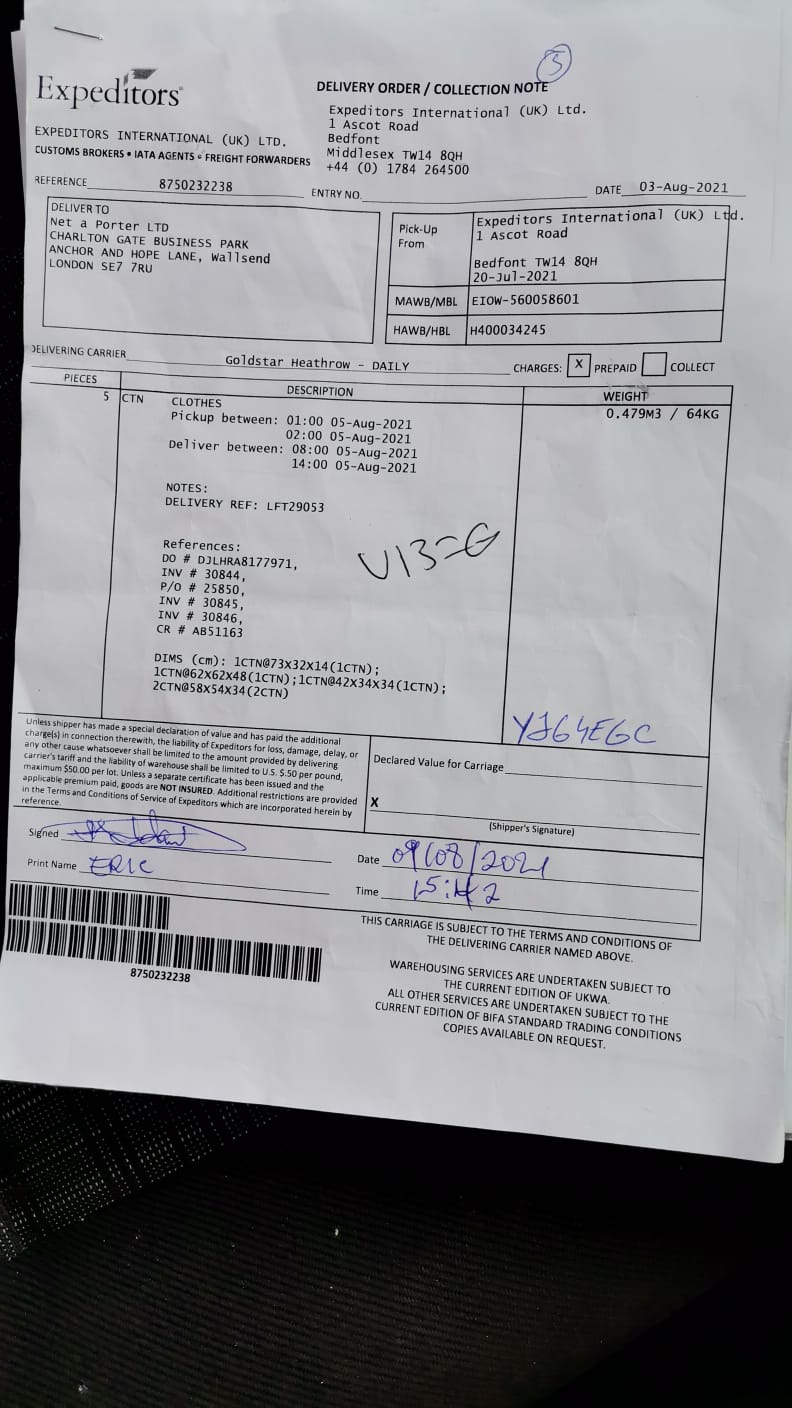 5
Expeditors
DELIVERY ORDER / COLLECTION NOTE
Expeditors International (UK) Ltd.
1 Ascot Road
Bedfont
Middlesex TW14 8QH
+44 (0) 1784 264500
EXPEDITORS INTERNATIONAL (UK) LTD.
CUSTOMS BROKERS • IATA AGENTS • FREIGHT FORWARDERS
REFERENCE 8750232238 ENTRY NO. DATE 03-Aug-2021
DELIVER TO
Net a Porter LTD
CHARLTON GATE BUSINESS PARK
ANCHOR AND HOPE LANE, Wallsend
LONDON SE7 7RU
Pick-Up
From
Expeditors International (UK) Ltd.
1 Ascot Road
Bedfont TW14 8QH
20-Jul-2021
MAWB/MBL EIOW-560058601
HAWB/HBL H400034245
DELIVERING CARRIER Goldstar Heathrow - DAILY CHARGES: X PREPAID COLLECT
PIECES DESCRIPTION WEIGHT
5 CTN CLOTHES 0.479M3 / 64KG
Pickup between: 01:00 05-Aug-2021
02:00 05-Aug-2021
Deliver between: 08:00 05-Aug-2021
14:00 05-Aug-2021
NOTES:
DELIVERY REF: LFT29053
References:
DO # DJLHRA8177971,
INV # 30844,
P/O # 25850,
INV # 30845,
INV # 30846,
CR # AB51163
DIMS (cm): 1CTN@73X32X14(1CTN);
1CTN@62X62X48(1CTN);1CTN@42X34X34(1CTN);
2CTN@58X54X34(2CTN)
YJ64EGC
Unless shipper has made a special declaration of value and has paid the additional
charge(s) in connection therewith, the liability of Expeditors for loss, damage, delay, or
any other cause whatsoever shall be limited to the amount provided by delivering
carrier's tariff and the liability of warehouse shall be limited to U.S. $.50 per pound,
maximum $50.00 per lot. Unless a separate certificate has been issued and the
applicable premium paid, goods are NOT INSURED. Additional restrictions are provided
in the Terms and Conditions of Service of Expeditors which are incorporated herein by
reference.
Declared Value for Carriage
X
(Shipper's Signature)
Signed
Print Name ERIC
Date 09/08/2021
Time 15:42
8750232238
THIS CARRIAGE IS SUBJECT TO THE TERMS AND CONDITIONS OF
THE DELIVERING CARRIER NAMED ABOVE.
WAREHOUSING SERVICES ARE UNDERTAKEN SUBJECT TO
THE CURRENT EDITION OF UKWA.
ALL OTHER SERVICES ARE UNDERTAKEN SUBJECT TO THE
CURRENT EDITION OF BIFA STANDARD TRADING CONDITIONS
COPIES AVAILABLE ON REQUEST.